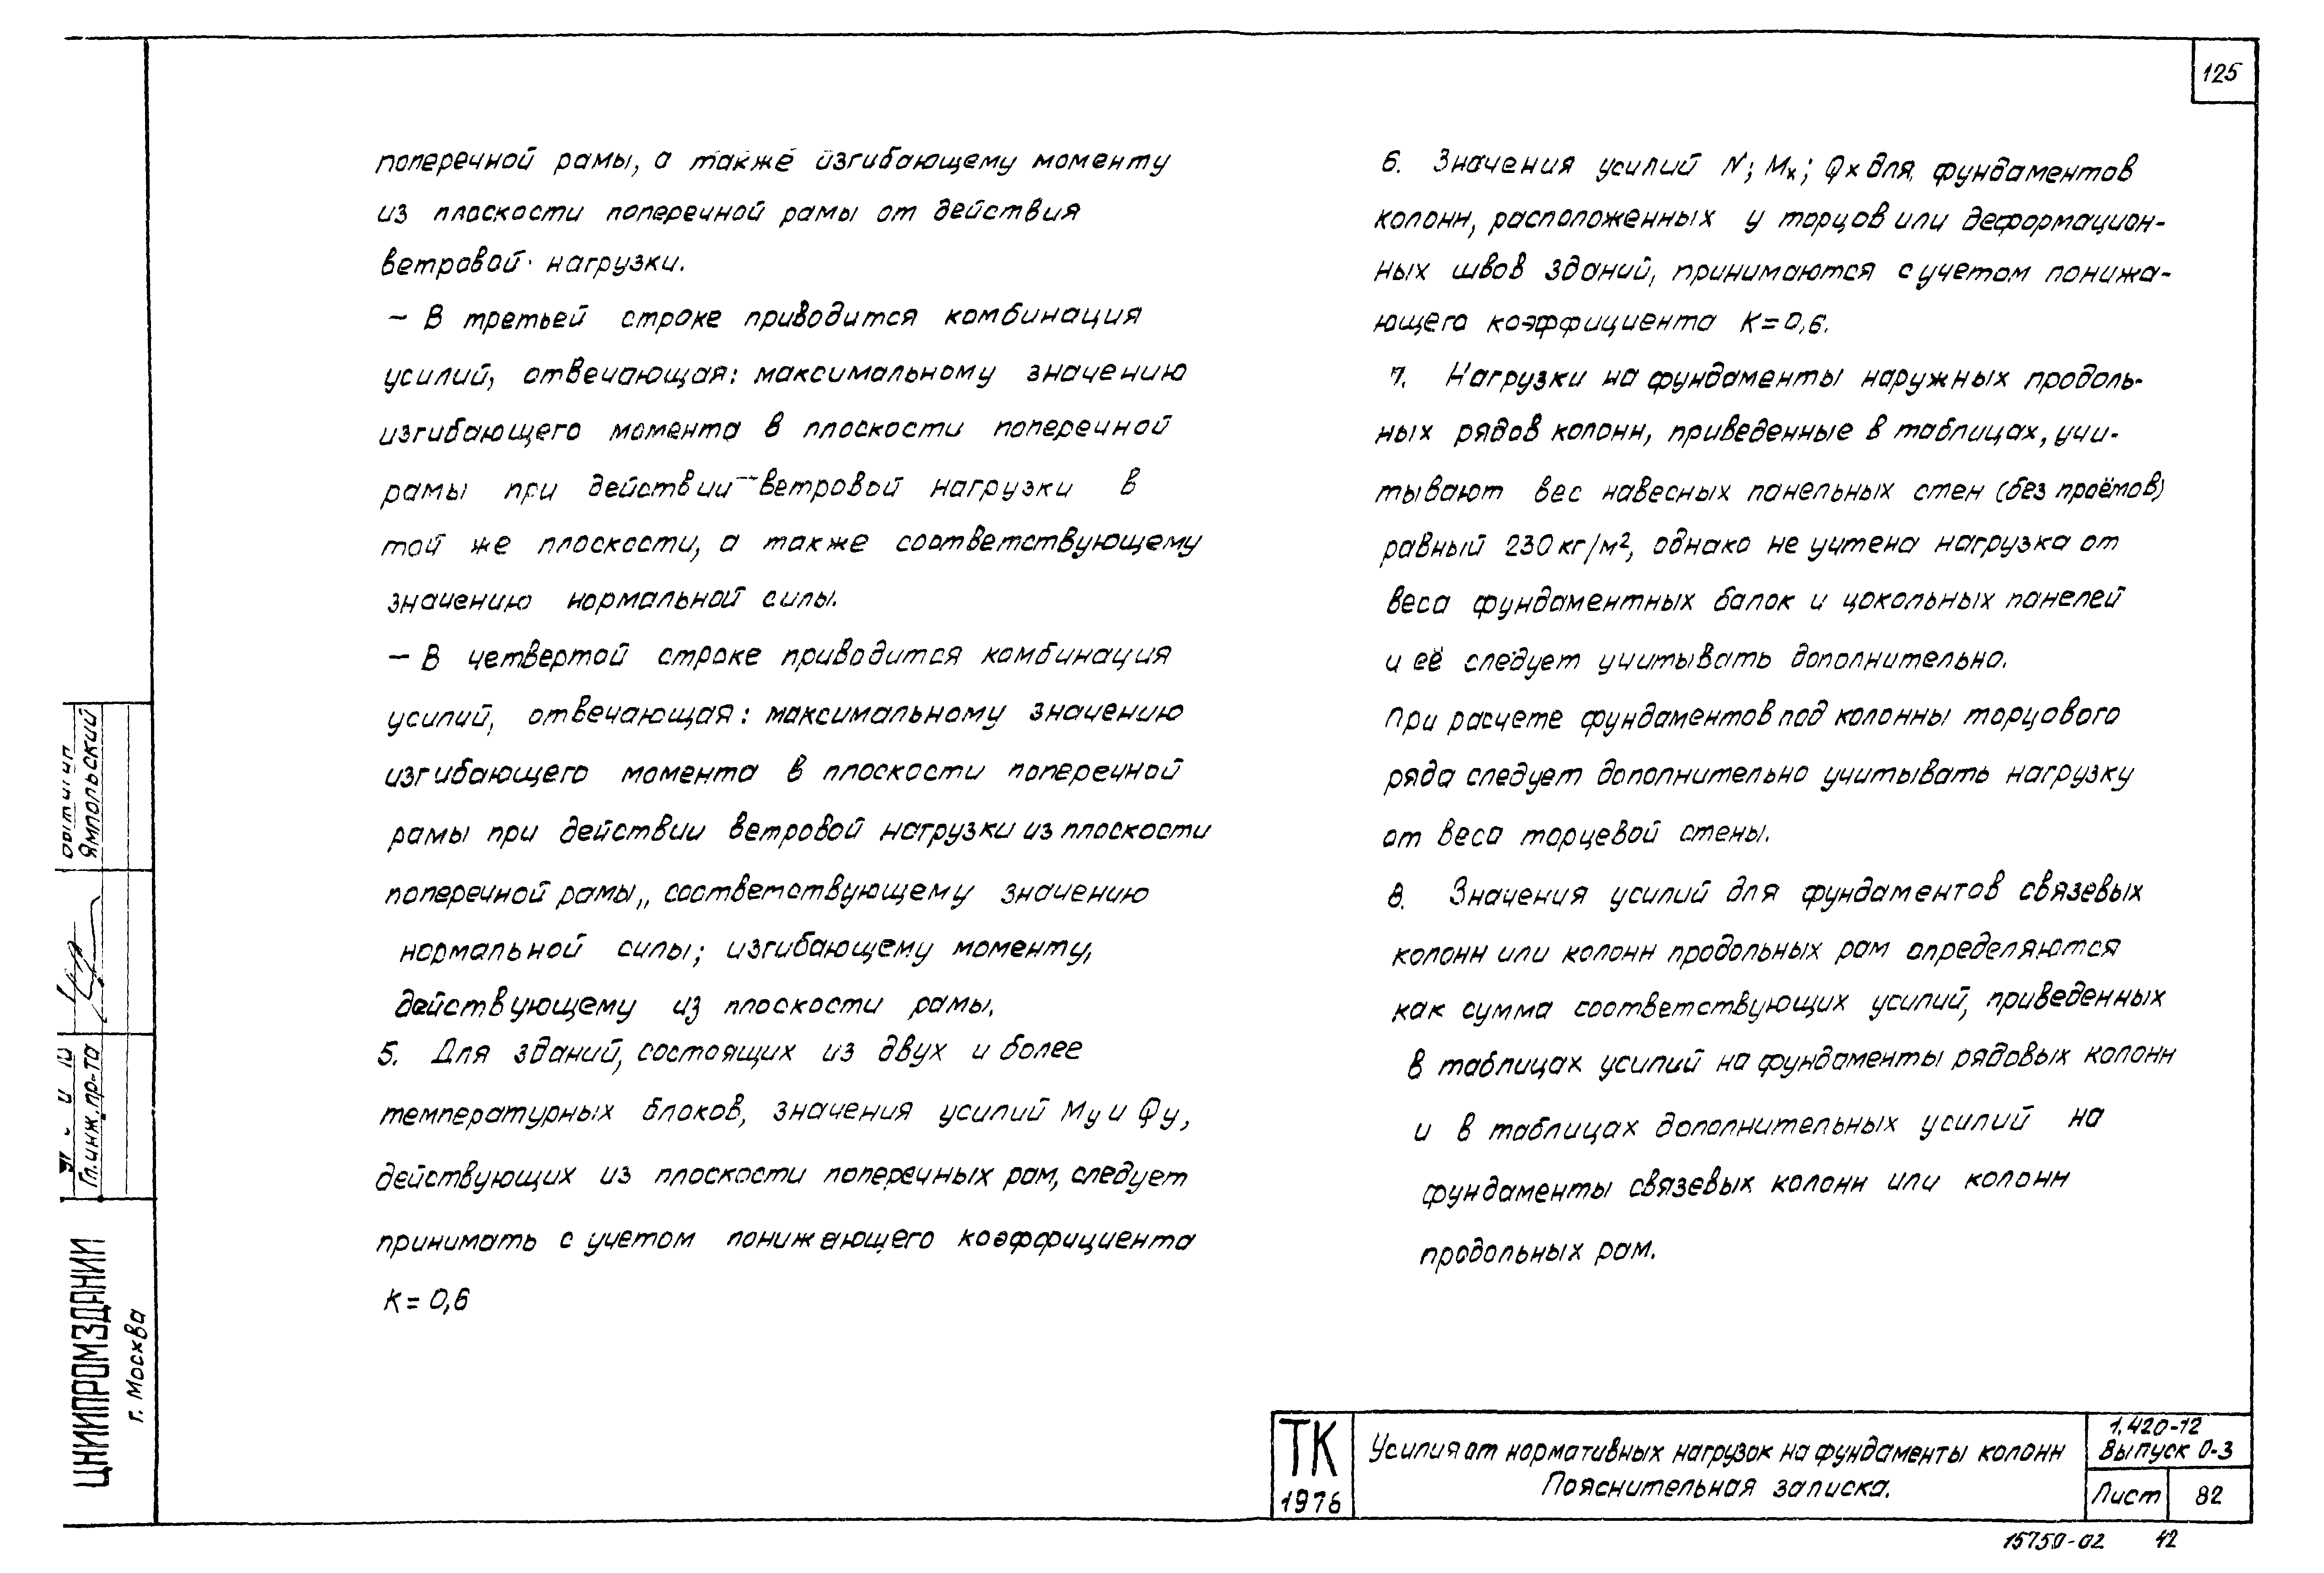 125
поперечной рамы, а также изгибающему моменту
из плоскости поперечной рамы от действия
ветровой нагрузки.
– В третьей строке приводится комбинация
усилий, отвечающая: максимальному значению
изгибающего момента в плоскости поперечной
рамы при действии ветровой нагрузки в
той же плоскости, а также соответствующему
значению нормальной силы.
– В четвертой строке приводится комбинация
усилий, отвечающая: максимальному значению
изгибающего момента в плоскости поперечной
рамы при действии ветровой нагрузки из плоскости
поперечной рамы,, соответствующему значению
нормальной силы; изгибающему моменту,
действующему из плоскости рамы.
5. Для зданий, состоящих из двух и более
температурных блоков, значения усилий Му и Qу,
действующих из плоскости поперечных рам, следует
принимать с учетом понижающего коэффициента
К = 0,6
6. Значения усилий N; Мх; Qх для фундаментов
колонн, расположенных у торцов или деформацион-
ных швов зданий, принимаются с учетом понижа-
ющего коэффициента К = 0,6.
7. Нагрузки на фундаменты наружных продоль-
ных рядов колонн, приведенные в таблицах, учи-
тывают вес навесных панельных стен (без проёмов)
равный 230 кг/м², однако не учтена нагрузка от
веса фундаментных балок и цокольных панелей
и её следует учитывать дополнительно.
При расчете фундаментов под колонны торцового
ряда следует дополнительно учитывать нагрузку
от веса торцевой стены.
8. Значения усилий для фундаментов связевых
колонн или колонн продольных рам определяются
как сумма соответствующих усилий, приведенных
в таблицах усилий на фундаменты рядовых колонн
и в таблицах дополнительных усилий на
фундаменты связевых колонн или колонн
продольных рам.
Ямпольский
Гл. инж. пр-та
ЦНИИПРОМЗДАНИЙ
г. Москва
ТК
1976
Усилия от нормативных нагрузок на фундаменты колонн
Пояснительная записка.
1.420-12
Выпуск 0-3
Лист 82
15750-02 42